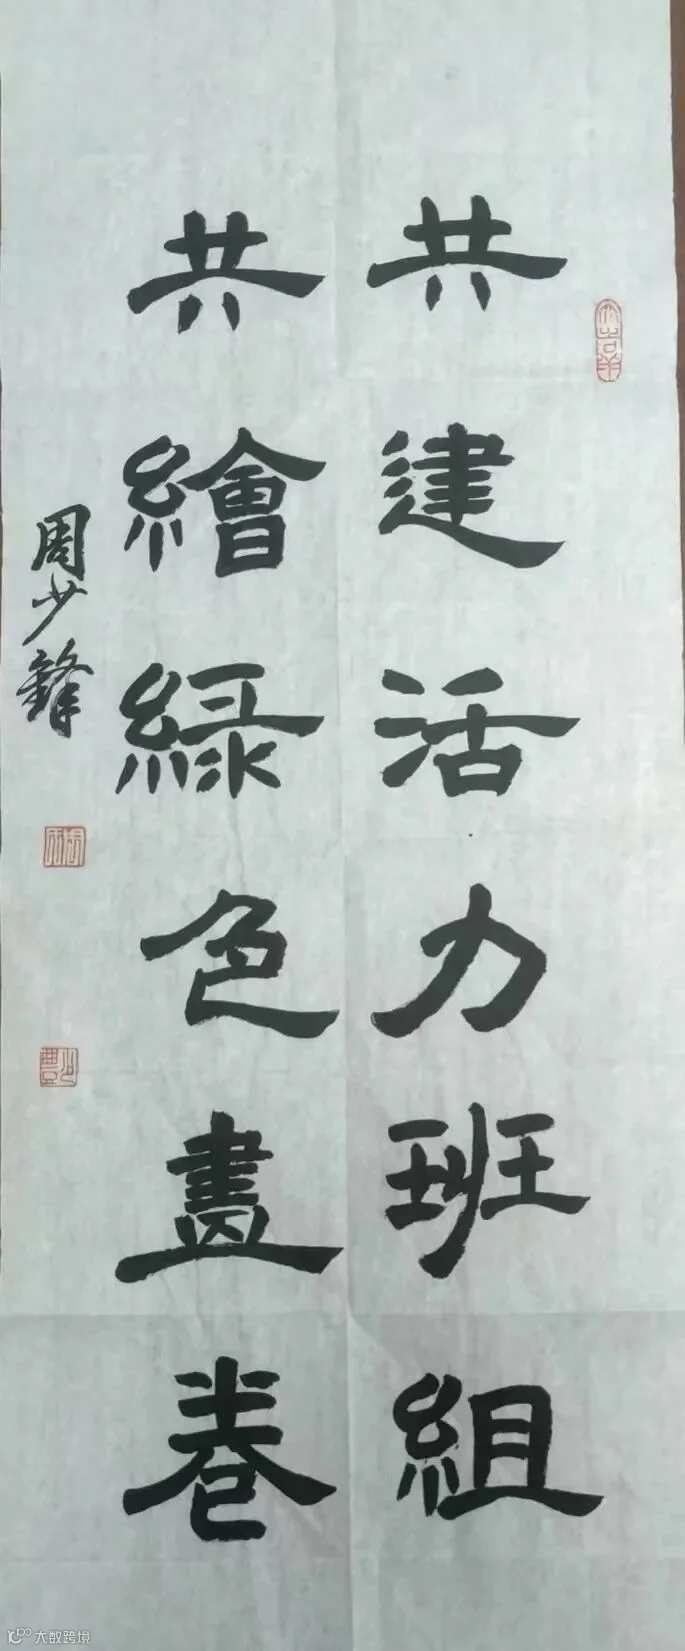 共建活力班組
共繪綠色畫卷
周少鋒
大数跨境